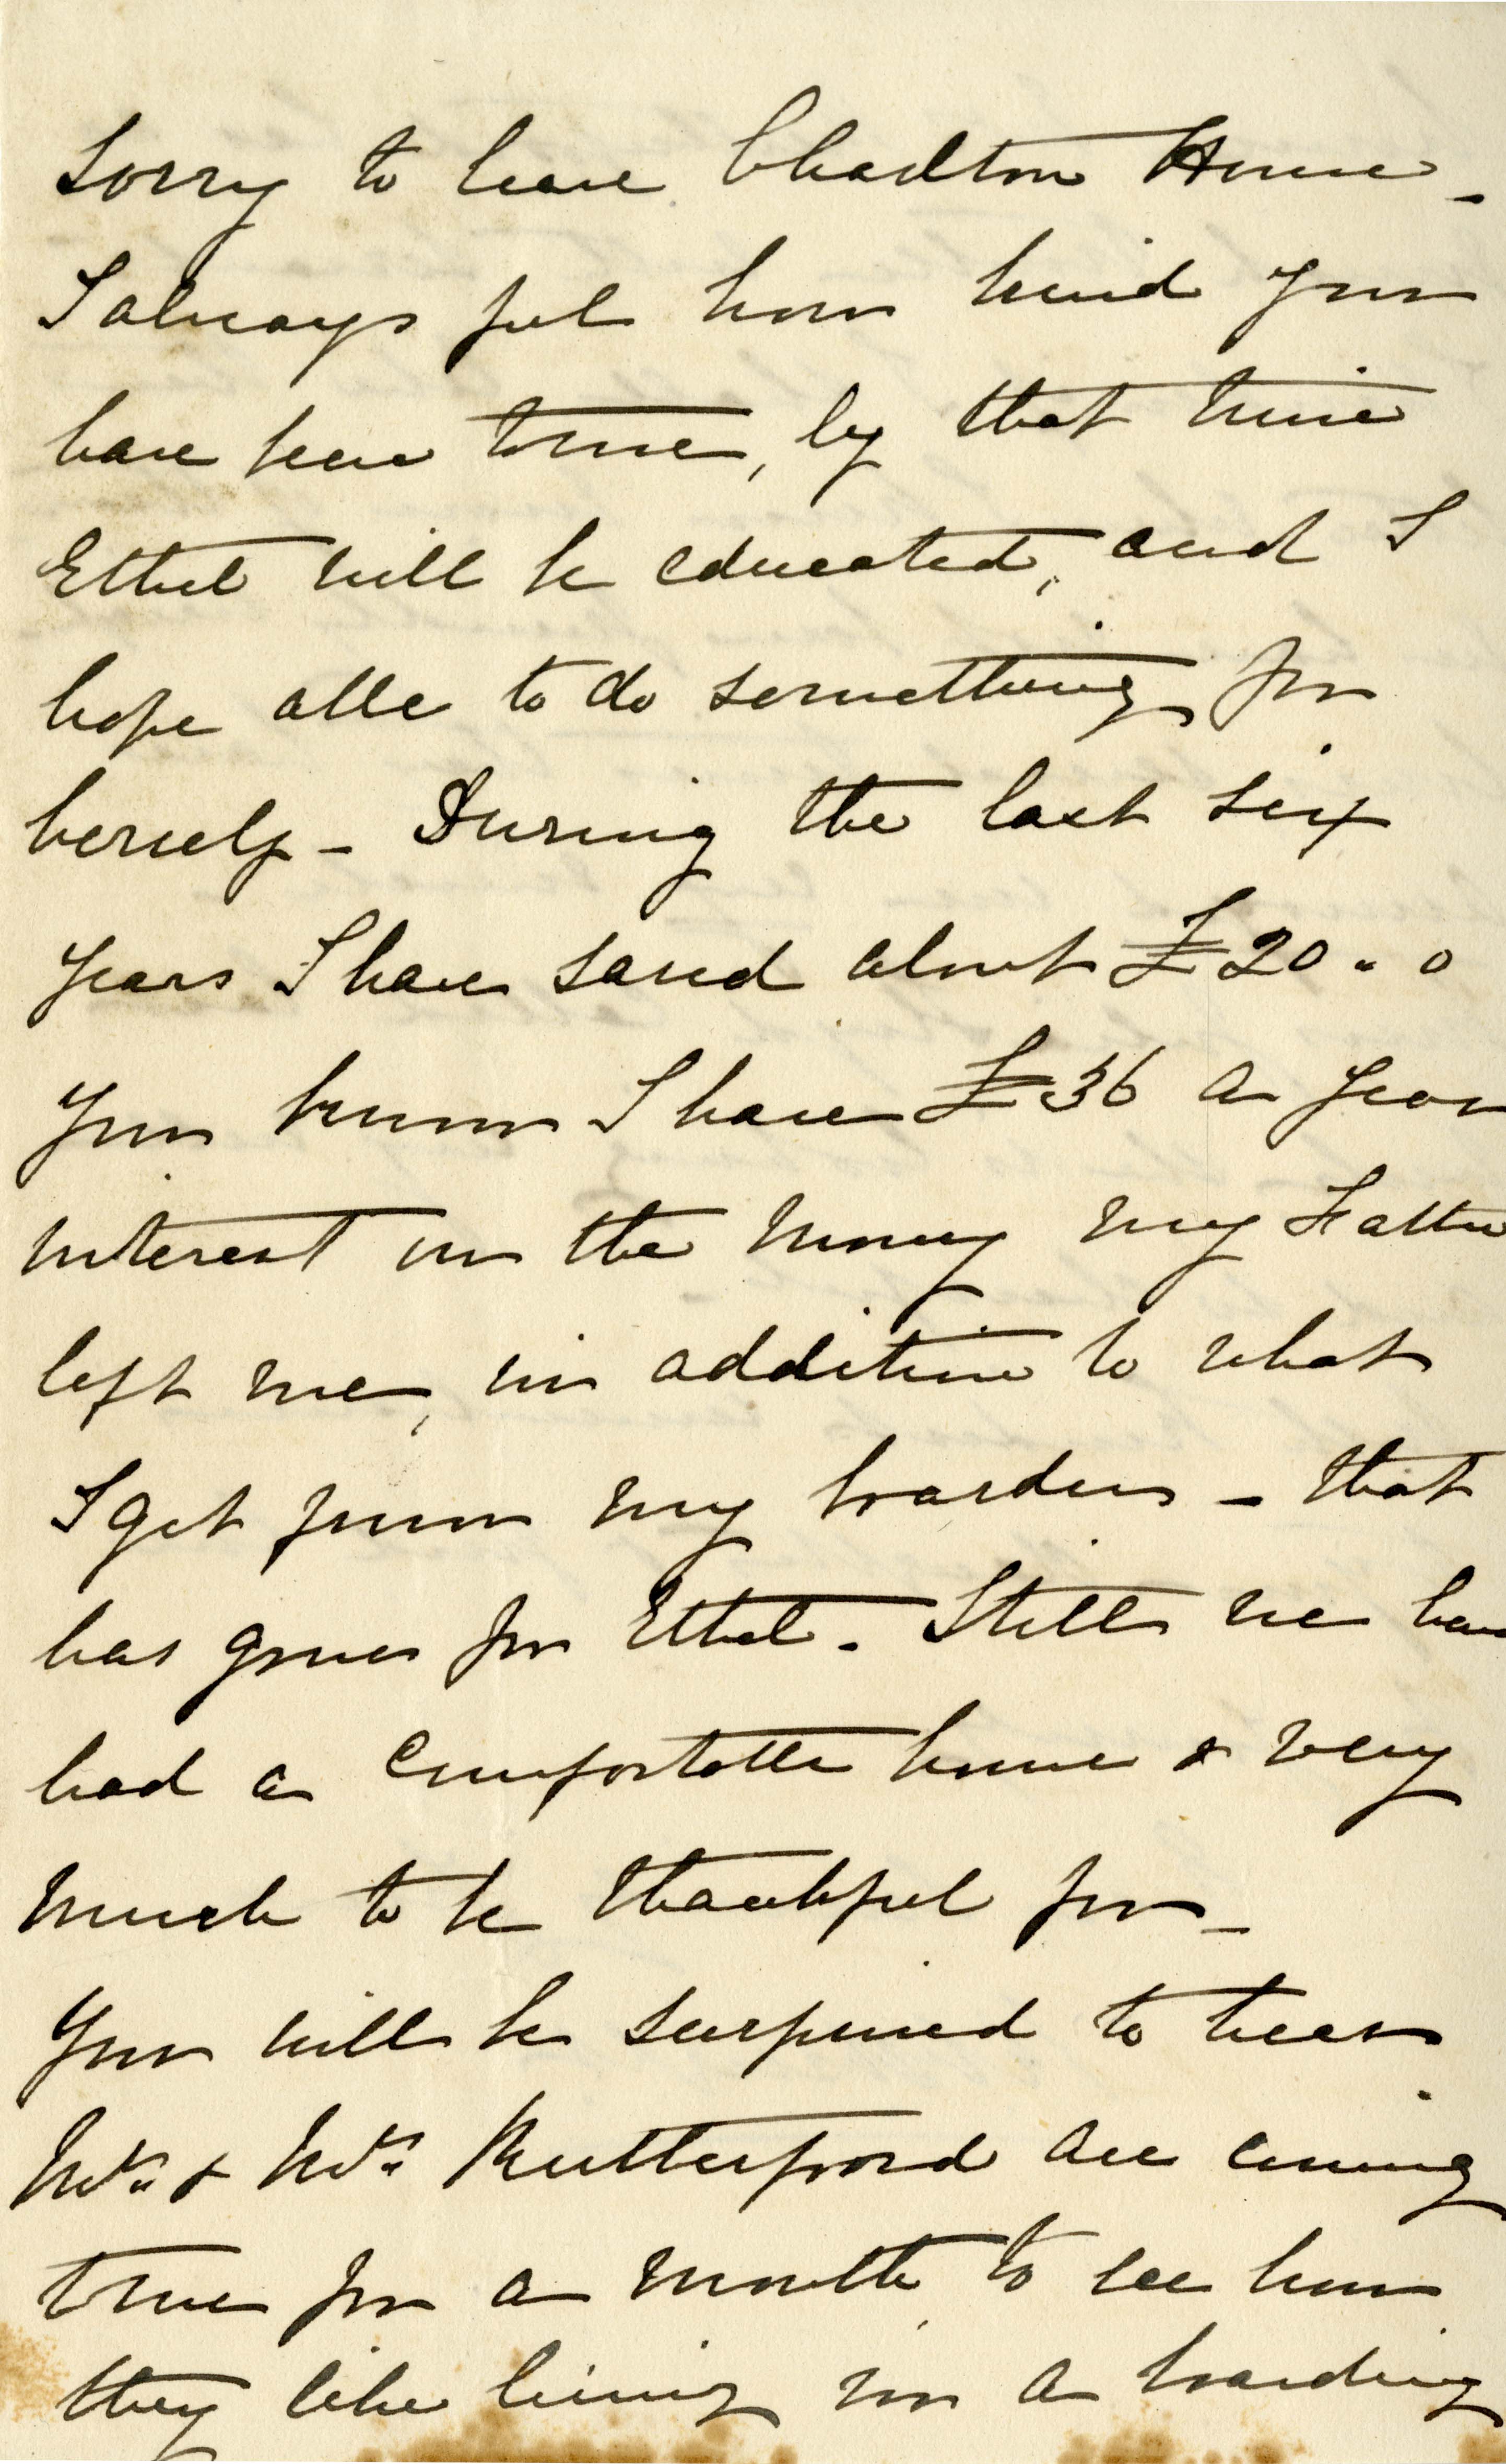 sorry to leave Charlton House -
I always feel how kind you
have been to me, by that time
Ethel will be educated, and I
hope able to do something for
herself - During the last six
years I have saved about £20 . 0
You know I have £36 a year
interest on the money my Father
left me, in addition to what
I get from my boarders - that
has gone for Ethel. Still we have
had a comfortable home & very
much to be thankful for -
You will be surprised to hear
Mr. & Mrs. Rutherford are coming
to me for a month, to see how
they like living in a boarding